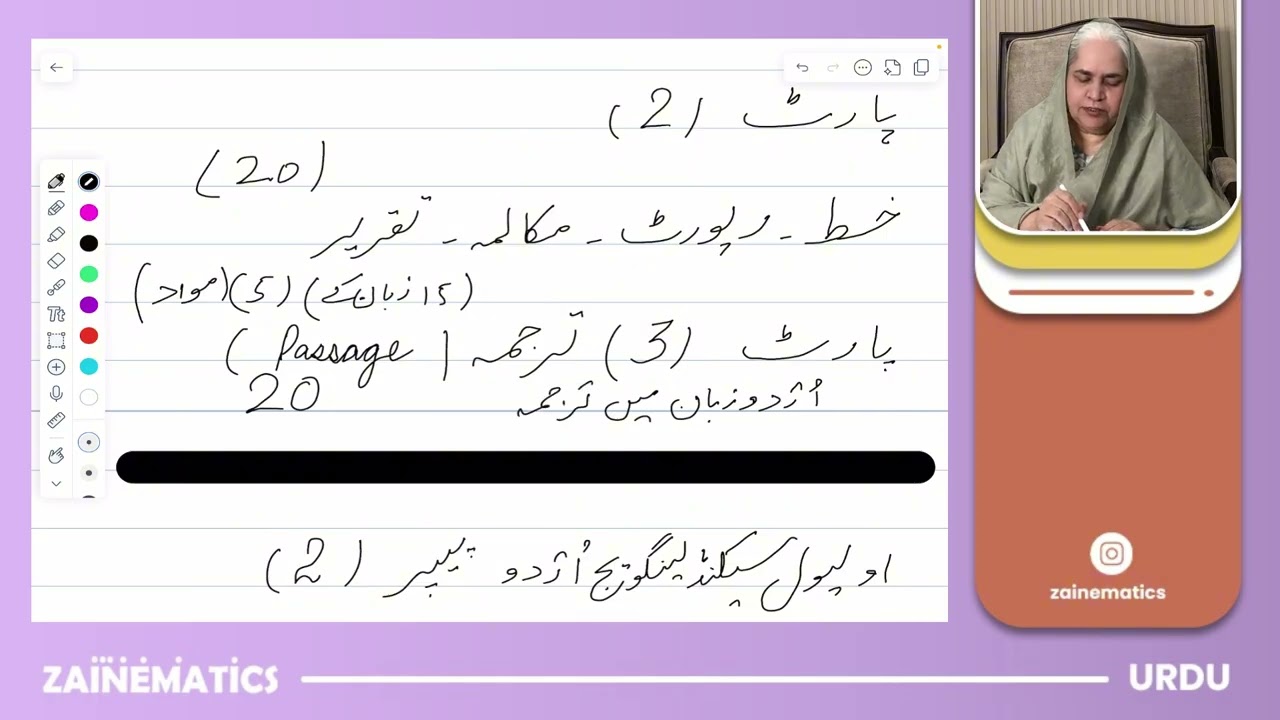 پارٹ (2)
(20)
خط ـ رپورٹ ـ مکالمہ ـ تقریر
(15 زبان کے) (5) (مواد)
پارٹ (3) ترجمہ (Passage)
اُردو زبان میں ترجمہ 20
او لیول سیکنڈ لینگویج اُردو پیپر (2)
Tt
zainematics
ZAINEMATICS
URDU